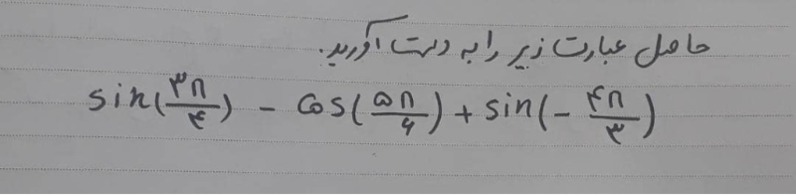 حاصل عبارت زیر را به دست آورید.
sin(۳π/۴) - cos(۵π/۶) + sin(-۴π/۳)